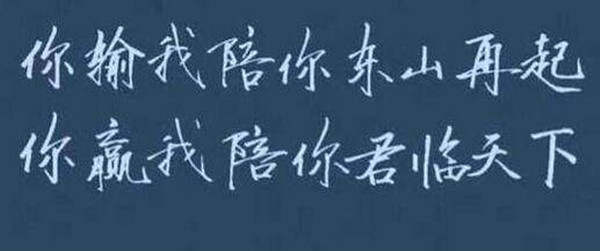 你输我陪你东山再起
你赢我陪你君临天下